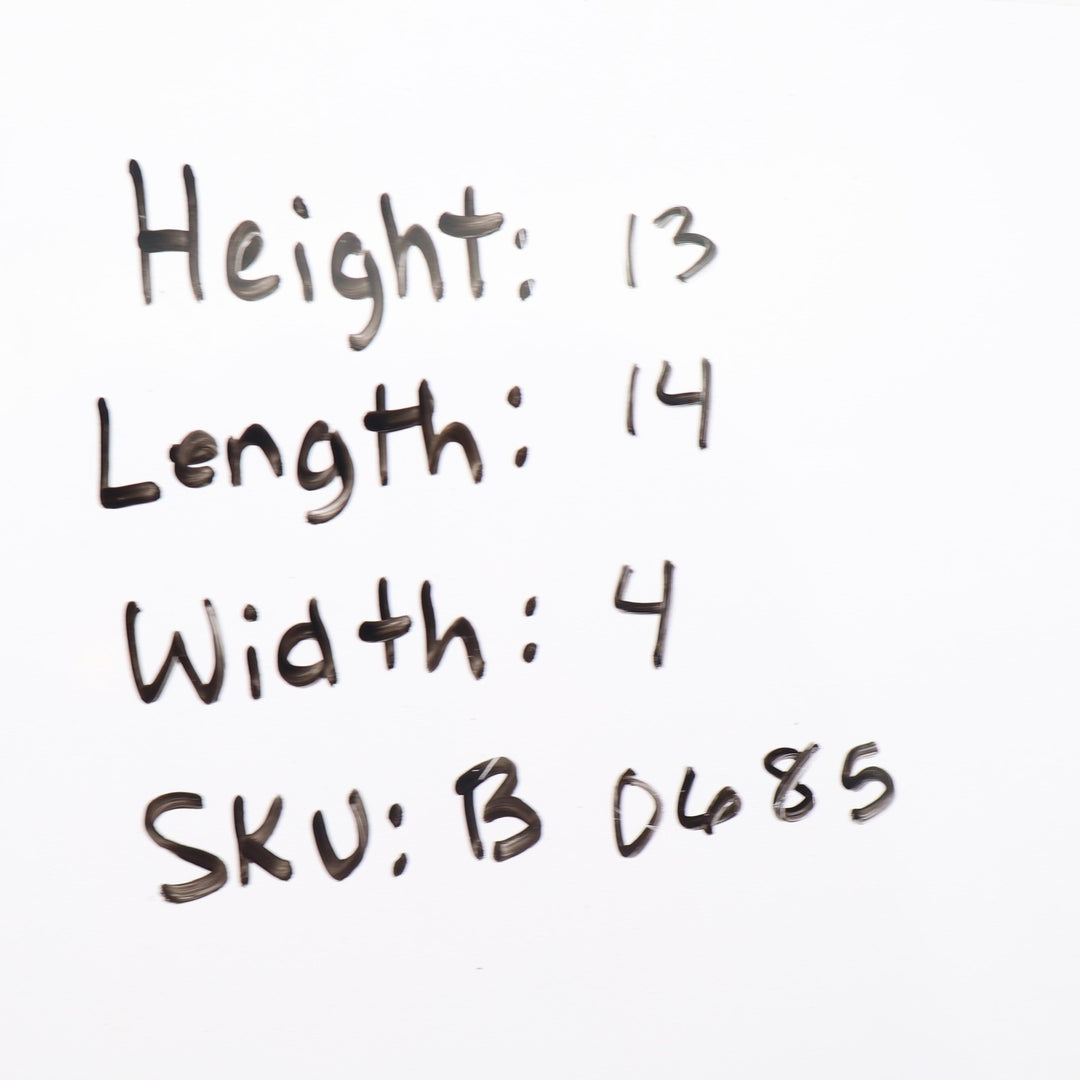 Height: 13
Length: 14
Width: 4
SKU: B 0685